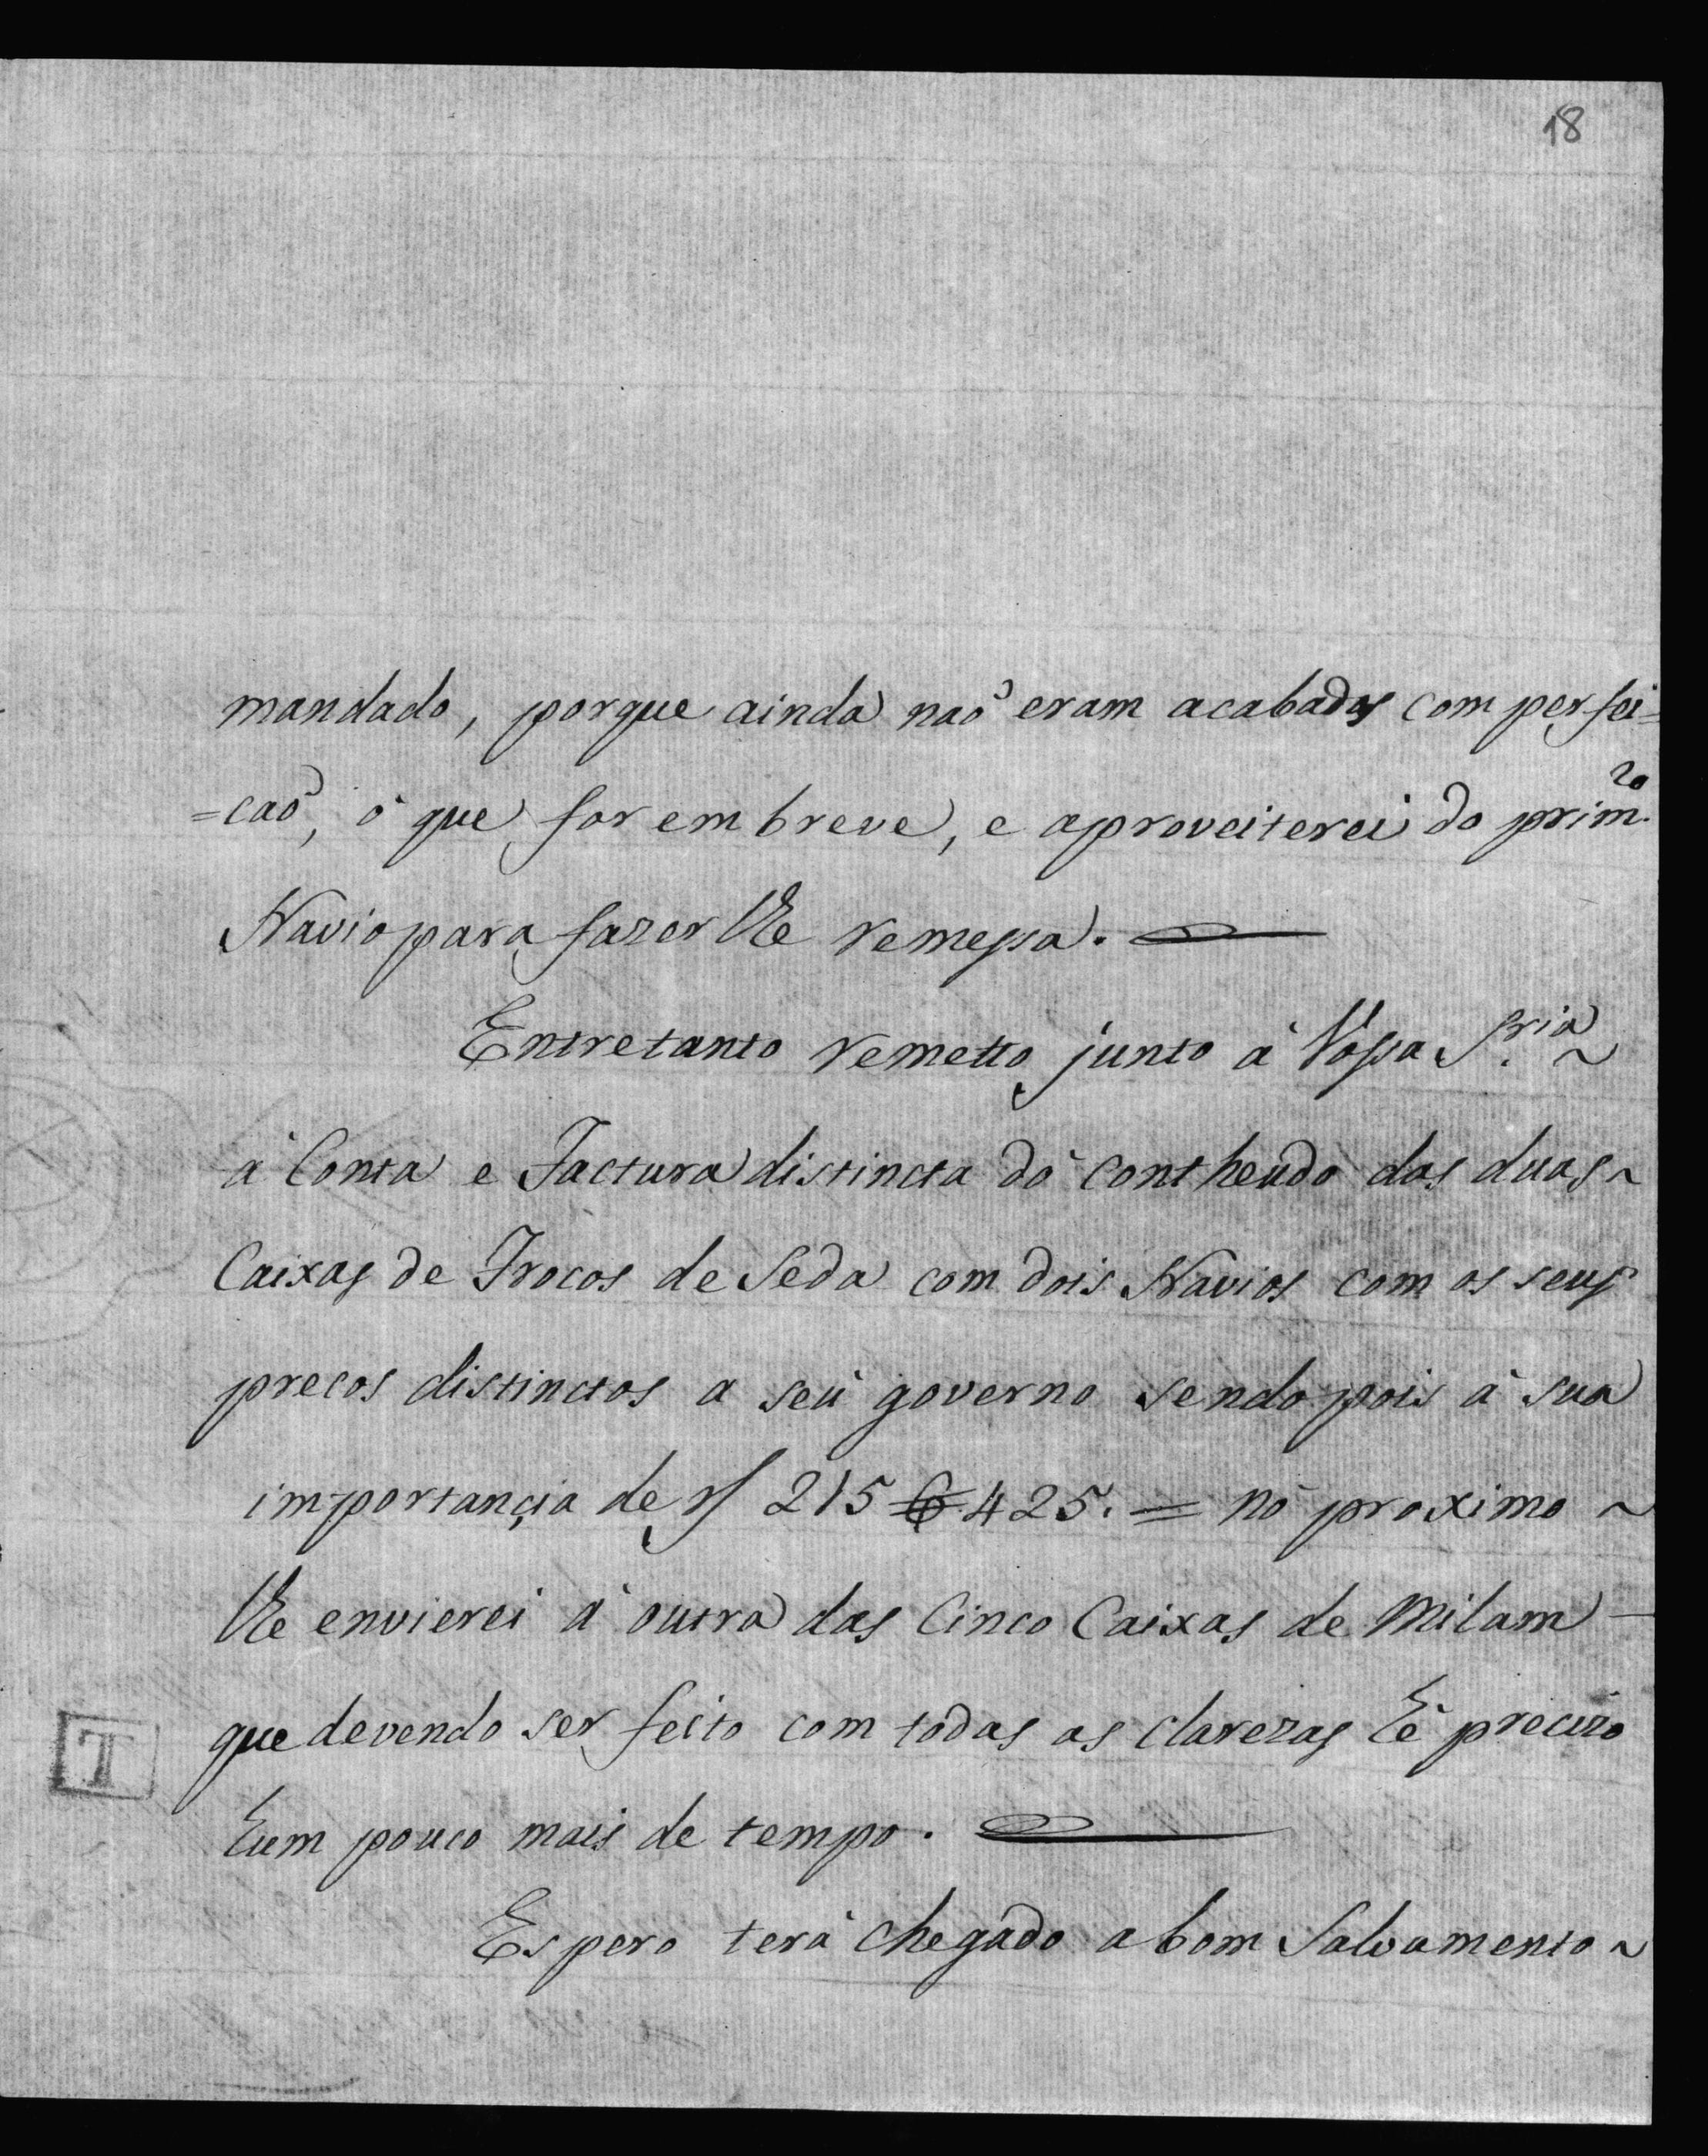 18
mandado, porque ainda naõ eram acabados com perfei=
=caõ, ò que for em breve, e aproveiterei do prim.ro
Navio para fazer lhe remessa.
Entretanto remetto junto à Vossa S.ria ~
à Conta e Factura distincta dò contheudo das duas ~
Caixas de Frocos de Seda com dois Navios com os seus
precos distinctos a seù governo sendo pois à sua
importançia de rs 215$425. = nò proximo ~
lhe envierei à outra das Cinco Caixas de Milam —
que devendo ser feito com todas as clarezas hè precizo
hum pouco mais de tempo.
T
Espero terà chegàdo a bom Salvamento ~